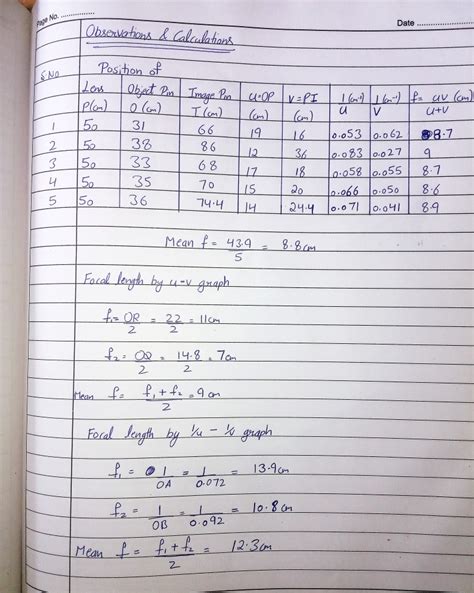 Page No. ..............
Date ..................
Observations & Calculations
S.No Position of
Lens P(cm) Object Pin O (cm) Image Pin I (cm) u=OP (cm) V=PI (cm) 1/u (cm⁻¹) 1/V (cm⁻¹) f= uv/u+v (cm)
1 50 31 66 19 16 0.053 0.062 8.7
2 50 38 86 12 36 0.083 0.027 9
3 50 33 68 17 18 0.058 0.055 8.7
4 50 35 70 15 20 0.066 0.050 8.6
5 50 36 74.4 14 24.4 0.071 0.041 8.9
Mean f = 43.9/5 = 8.8cm
Focal length by u-v graph
f₁= OR/2 = 22/2 = 11cm
f₂= OQ/2 = 14.8/2 = 7cm
Mean f= f₁+f₂/2 = 9cm
Focal length by 1/u - 1/v graph
f₁ = 1/OA = 1/0.072 = 13.9cm
f₂ = 1/OB = 1/0.092 = 10.8cm
Mean f = f₁+f₂/2 = 12.3cm